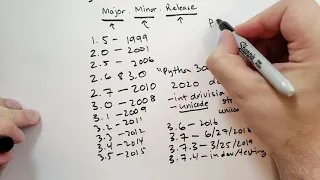 Major . Minor . Release
P
1.5 - 1999
2.0 - 2001
2.5 - 2006
2.6 & 3.0
2.7 - 2010
3.0 - 2008
3.1 - 2009
3.2 - 2011
3.3 - 2012
3.4 - 2014
3.5 - 2015
"Python 30
2020
- int division
- unicode
3.6 - 2016
3.7 - 6/27/2018
3.7.3 - 3/25/2019
3.7.4 - in dev/testing